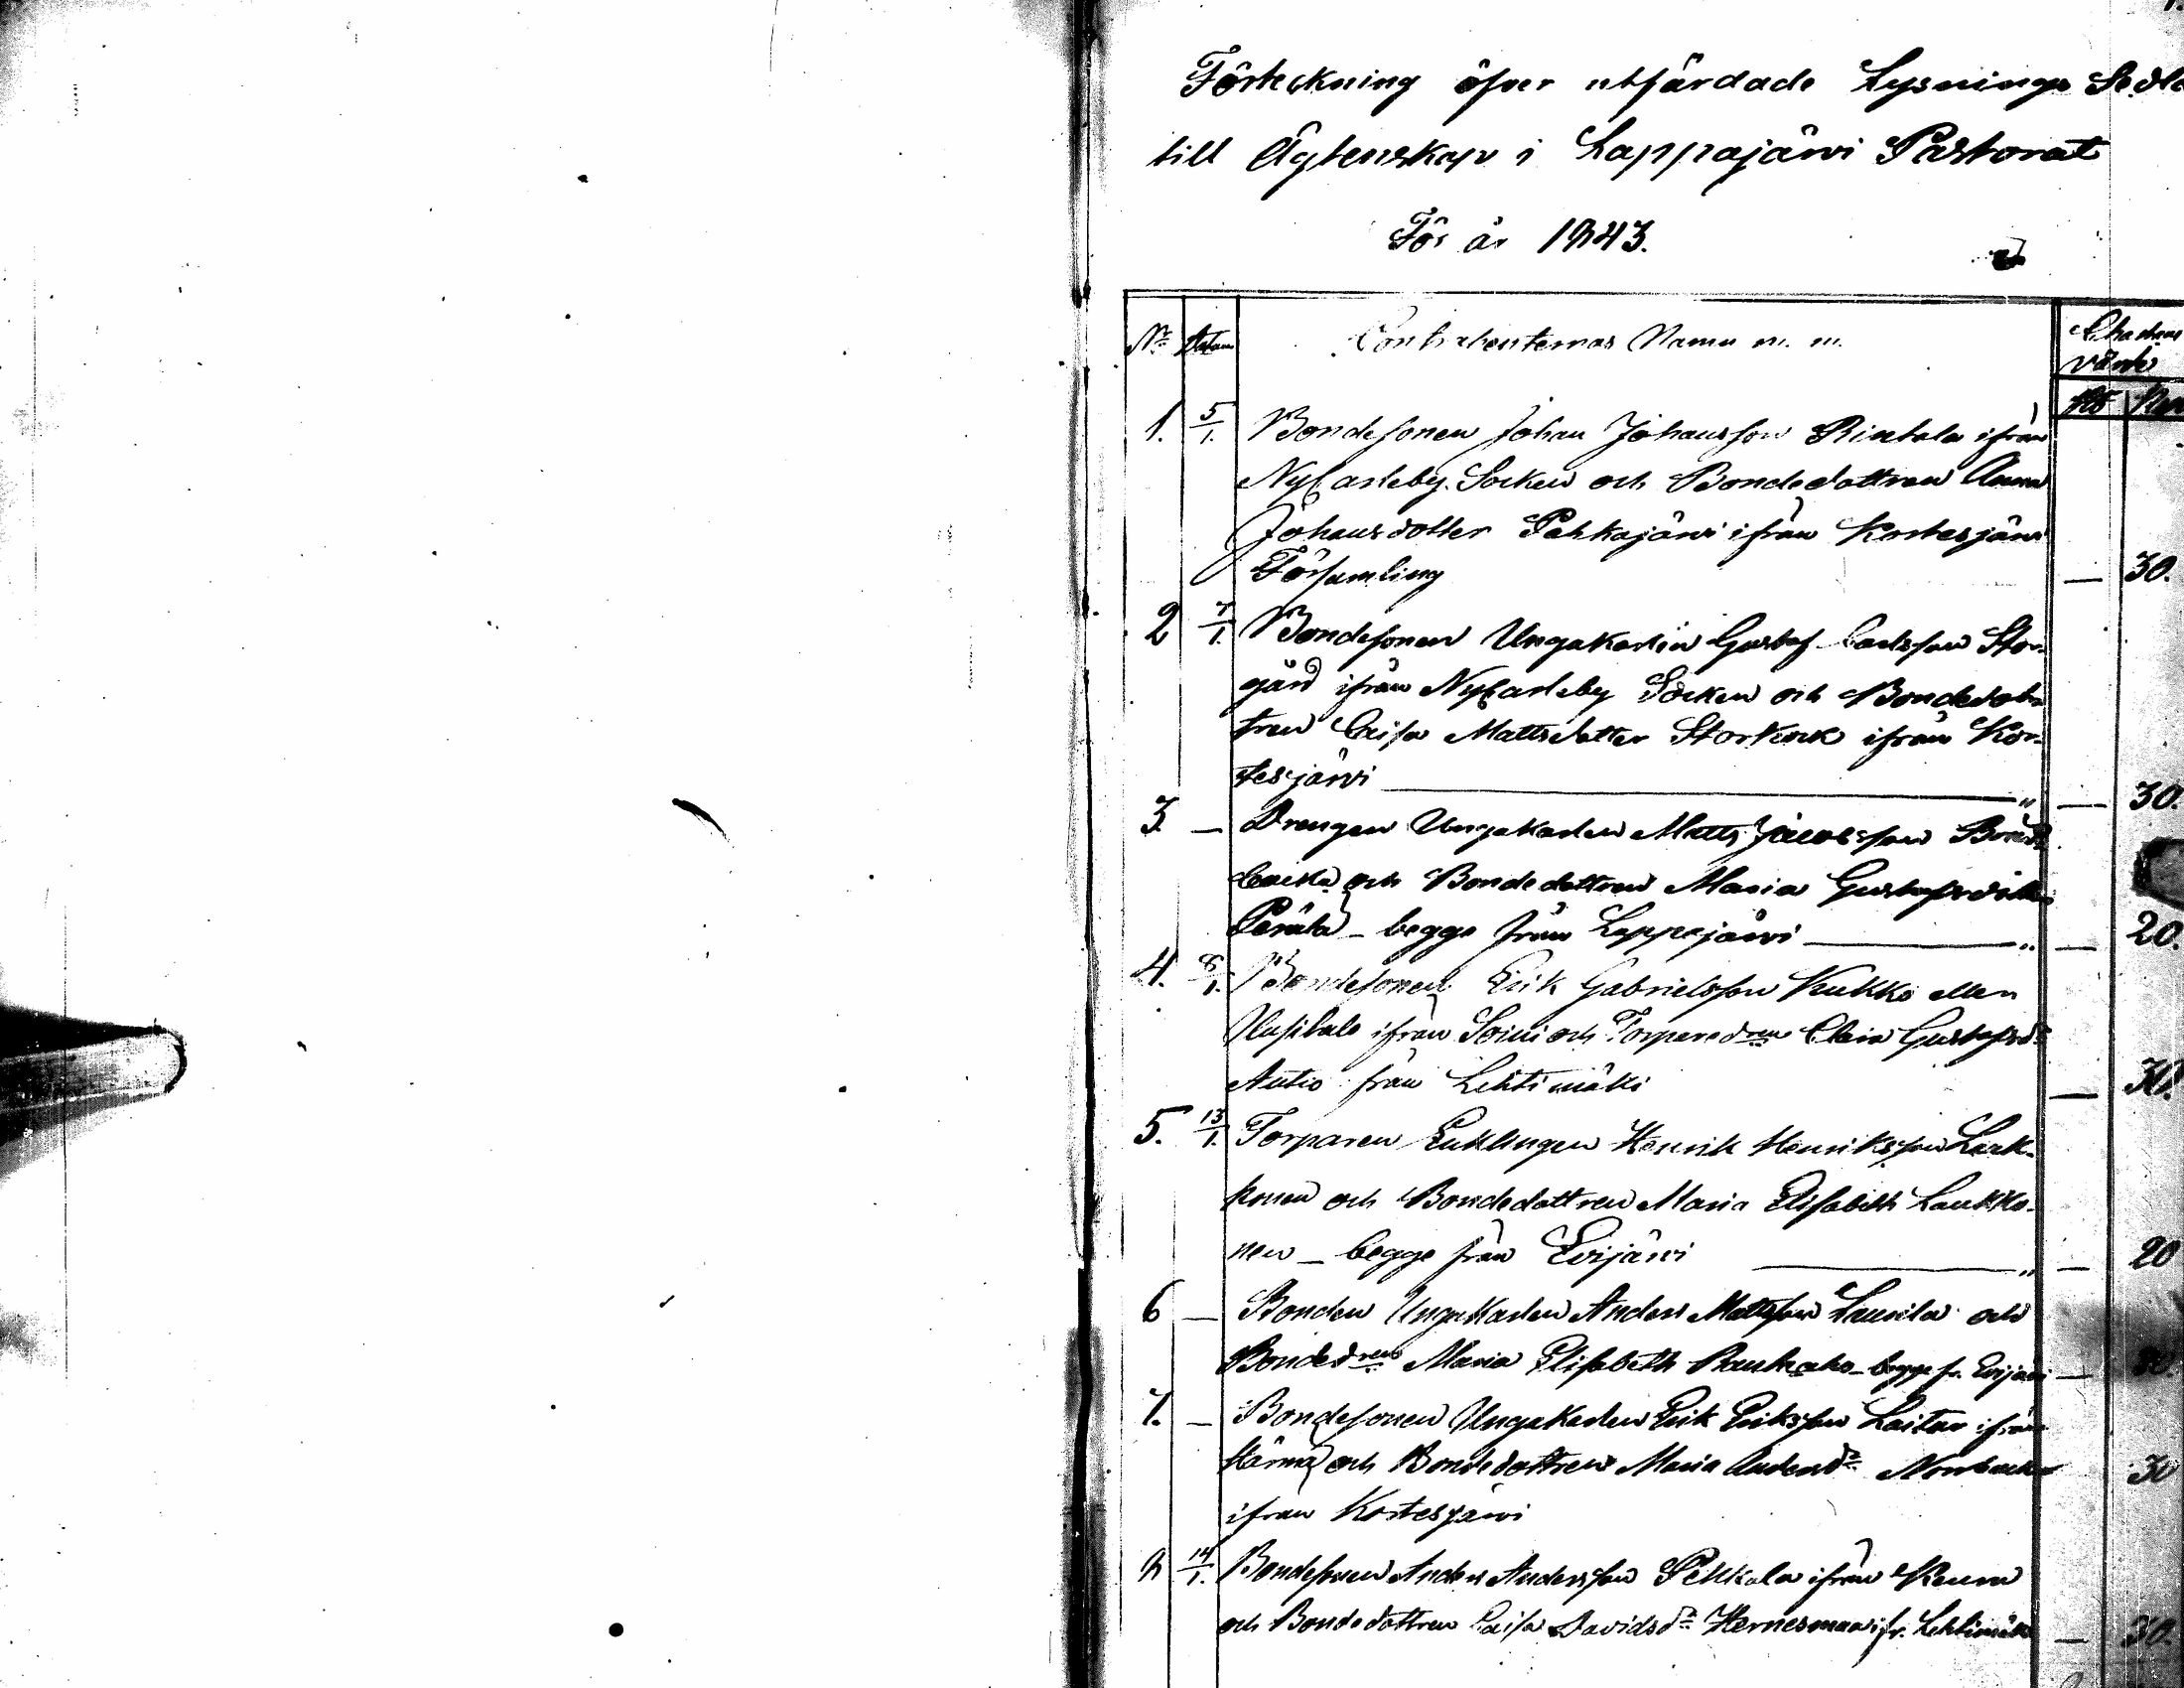 Förteckning öfver utfärdade Lysnings Sedl
till Ägtenskap i Lappajärvi Pastorat
För år 1843.
No Datum Contrahenternas Namn m. m. Charta värde
1. 5/1. Bondesonen Johan Johansson Rintala ifrån
NyCarleby Socken och Bondedottren Anna
Johansdotter Pehkajärvi ifrån Kortesjärvi
Församling — 30.
2 7/1. Bondesonen Ungakarlen Gustaf Carlsson Stor-
gård ifrån NyCarleby Socken och Bondedott-
tren Caisa Mattsdotter Storkock ifrån Kor-
tesjärvi — " — 30.
3. — Drengen Ungakarlen Matts Jacobsson
backa och Bondedottren Maria Gustafsdotter
Perälä – begge från Lappajärvi — " — 20.
4. 8/1. Bondesonen Erik Gabrielsson Kukko eller
Uusitalo ifrån Soini och Torparedren Clara Gustafsdr
Autio från Lehtimäki — 30.
5. 13/1. Torparen Enklingen Henrik Henriksson Lauk-
konen och Bondedottren Maria Elisabeth Laukko-
nen – begge från Evijärvi — " — 20
6 — Bonden Ungakarlen Anders Mattsson och
Bondedren Maria Elisabeth – begge fr. Evijärvi —
7. — Bondesonen Ungakarlen Erik Eriksson Laitan ifrån
Härmä och Bondedottren Maria Andersdr Norrbacka 30
ifrån Kortesjärvi
8 14/1. Bondesonen Anders Andersson Pekkala ifrån
och Bondedottren Caisa Davidsdr Hernesmaa ifr. Lehtimäki — 30.